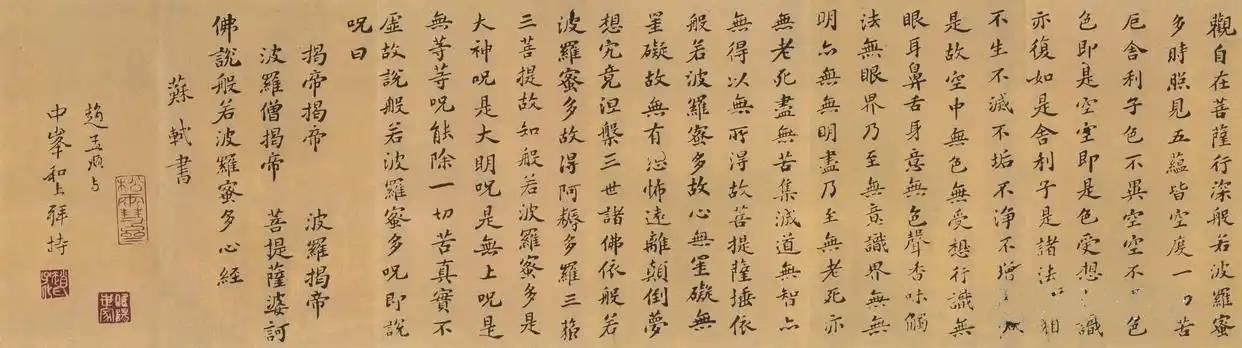 觀自在菩薩行深般若波羅蜜
多時照見五蘊皆空度一苦
厄舍利子色不異空空不色
色即是空空即是色受想識
亦復如是舍利子是諸法相
不生不滅不垢不淨不增
是故空中無色無受想行識無
眼耳鼻舌身意無色聲香味觸
法無眼界乃至無意識界無無
明亦無無明盡乃至無老死亦
無老死盡無苦集滅道無智亦
無得以無所得故菩提薩埵依
般若波羅蜜多故心無罣礙無
罣礙故無有恐怖遠離顛倒夢
想究竟涅槃三世諸佛依般若
波羅蜜多故得阿耨多羅三藐
三菩提故知般若波羅蜜多是
大神呪是大明呪是無上呪是
無等等呪能除一切苦真實不
虛故說般若波羅蜜多呪即說
呪曰
揭帝揭帝 波羅揭帝
波羅僧揭帝 菩提薩婆訶
佛說般若波羅蜜多心經
蘇軾書
趙孟頫与
中峯和上拜持